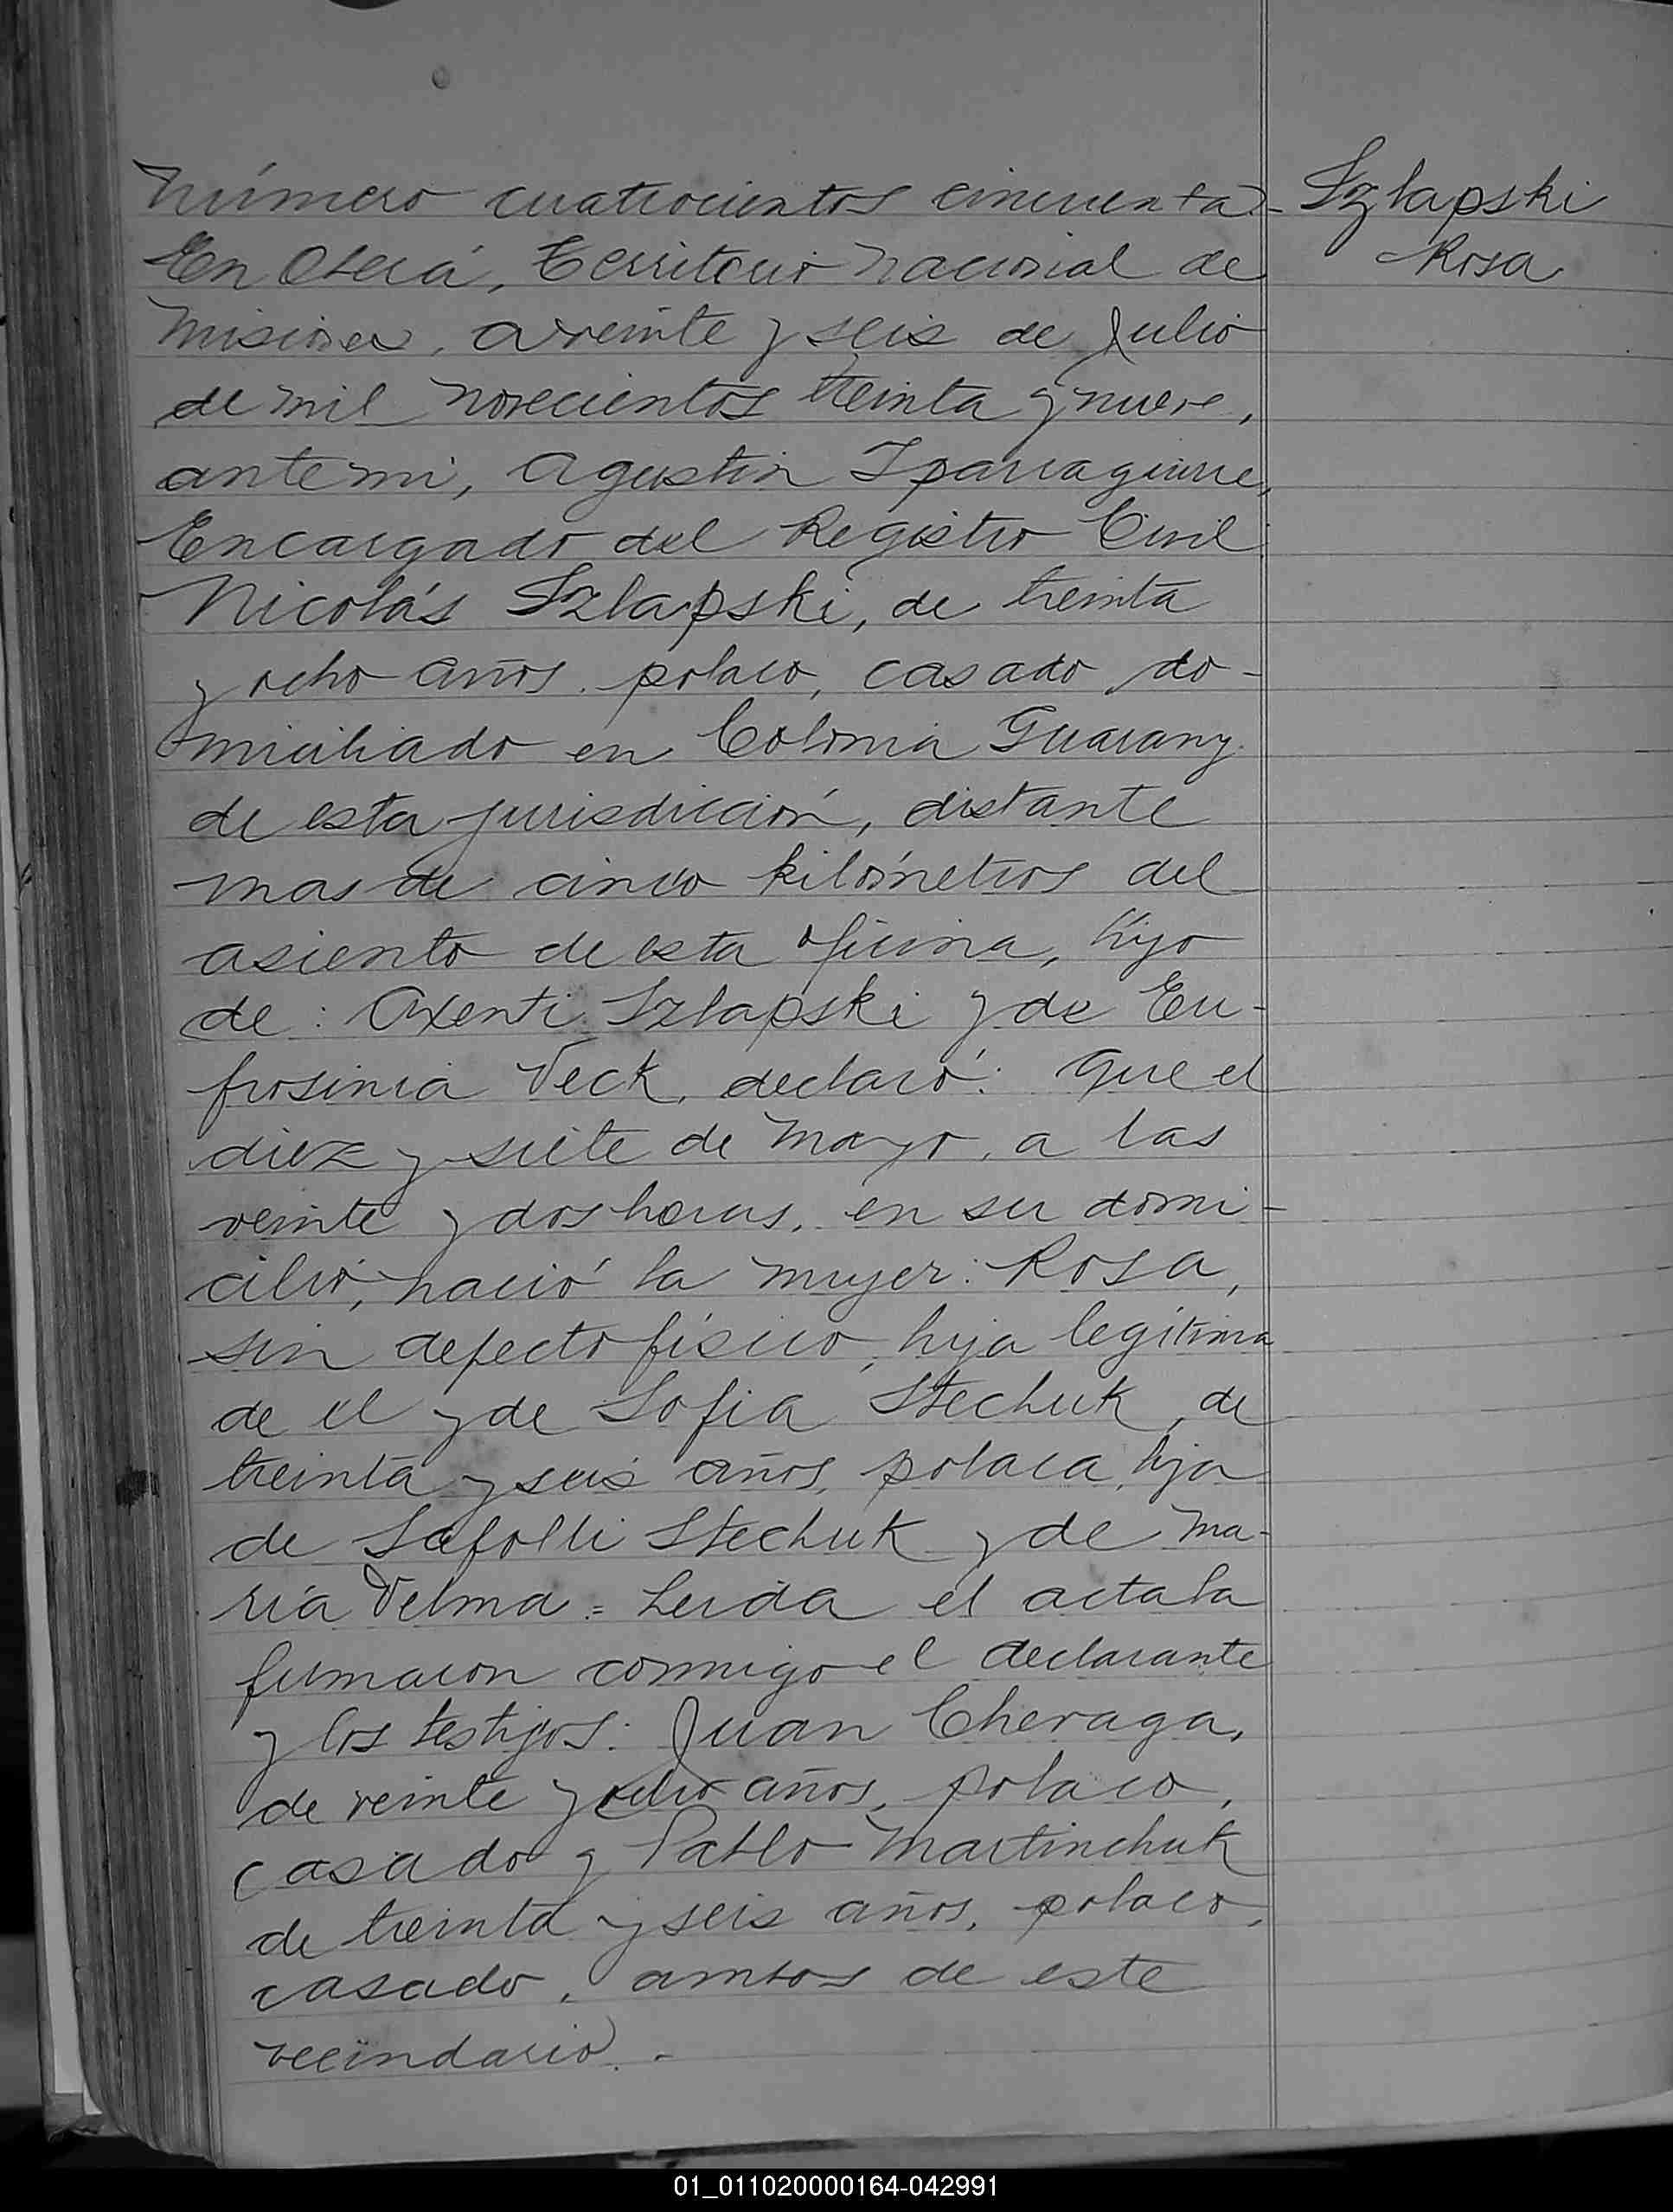 Número cuatrocientos cincuenta -
Szlapski
Rosa
En Oberá, Territorio Nacional de
Misiones, a veinte y seis de Julio
de mil novecientos treinta y nueve,
ante mi, Agustin Iparraguirre,
Encargado del Registro Civil
Nicolás Szlapski, de treinta
y ocho años, polaco, casado do-
miciliado en Colonia Guarany
de esta jurisdicción, distante
mas de cinco kilómetros del
asiento de esta oficina, hijo
de: Axenti Szlapski y de Eu-
frosinia Veck, declaró: Que el
diez y siete de Mayo, a las
veinte y dos horas, en su domi-
cilio, nació la mujer: Rosa,
sin defecto físico, hija legítima
de el y de Sofia Stechuk, de
treinta y seis años, polaca, hija
de Stechuk y de Ma-
ría Velma = Leida el acta la
firmaron conmigo el declarante
y los testigos: Juan Cheraga,
de veinte y ocho años, polaco,
casado y Pablo Martinchuk
de treinta y seis años, polaco,
casado, ambos de este
vecindario. -
01_011020000164-042991